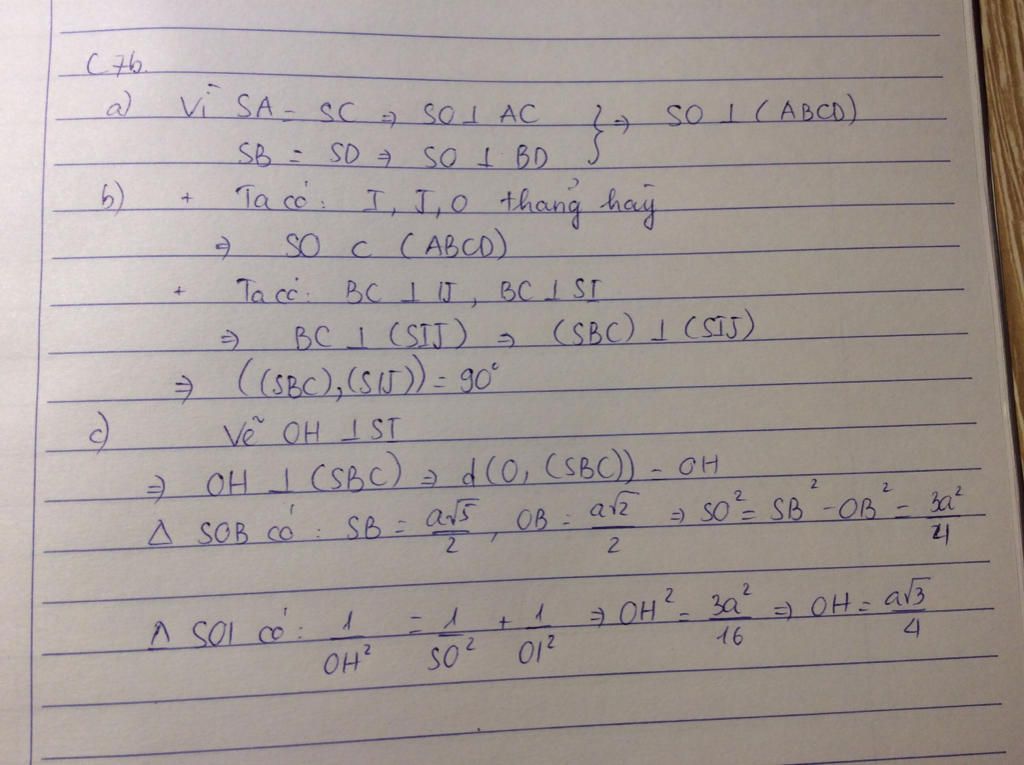 C 7b.
a) Vì SA = SC ⇒ SO ⊥ AC } ⇒ SO ⊥ (ABCD)
SB = SD ⇒ SO ⊥ BD
b) + Ta có: I, J, O thẳng hàng
⇒ SO ⊂ (ABCD)
+ Ta có: BC ⊥ IJ, BC ⊥ SI
⇒ BC ⊥ (SIJ) ⇒ (SBC) ⊥ (SIJ)
⇒ ((SBC),(SIJ)) = 90°
c) Vẽ OH ⊥ SI
⇒ OH ⊥ (SBC) ⇒ d(O, (SBC)) = OH
Δ SOB có: SB = a√5/2, OB = a√2/2 ⇒ SO² = SB² - OB² = 3a²/4
Δ SOI có: 1/OH² = 1/SO² + 1/OI² ⇒ OH² = 3a²/16 ⇒ OH = a√3/4